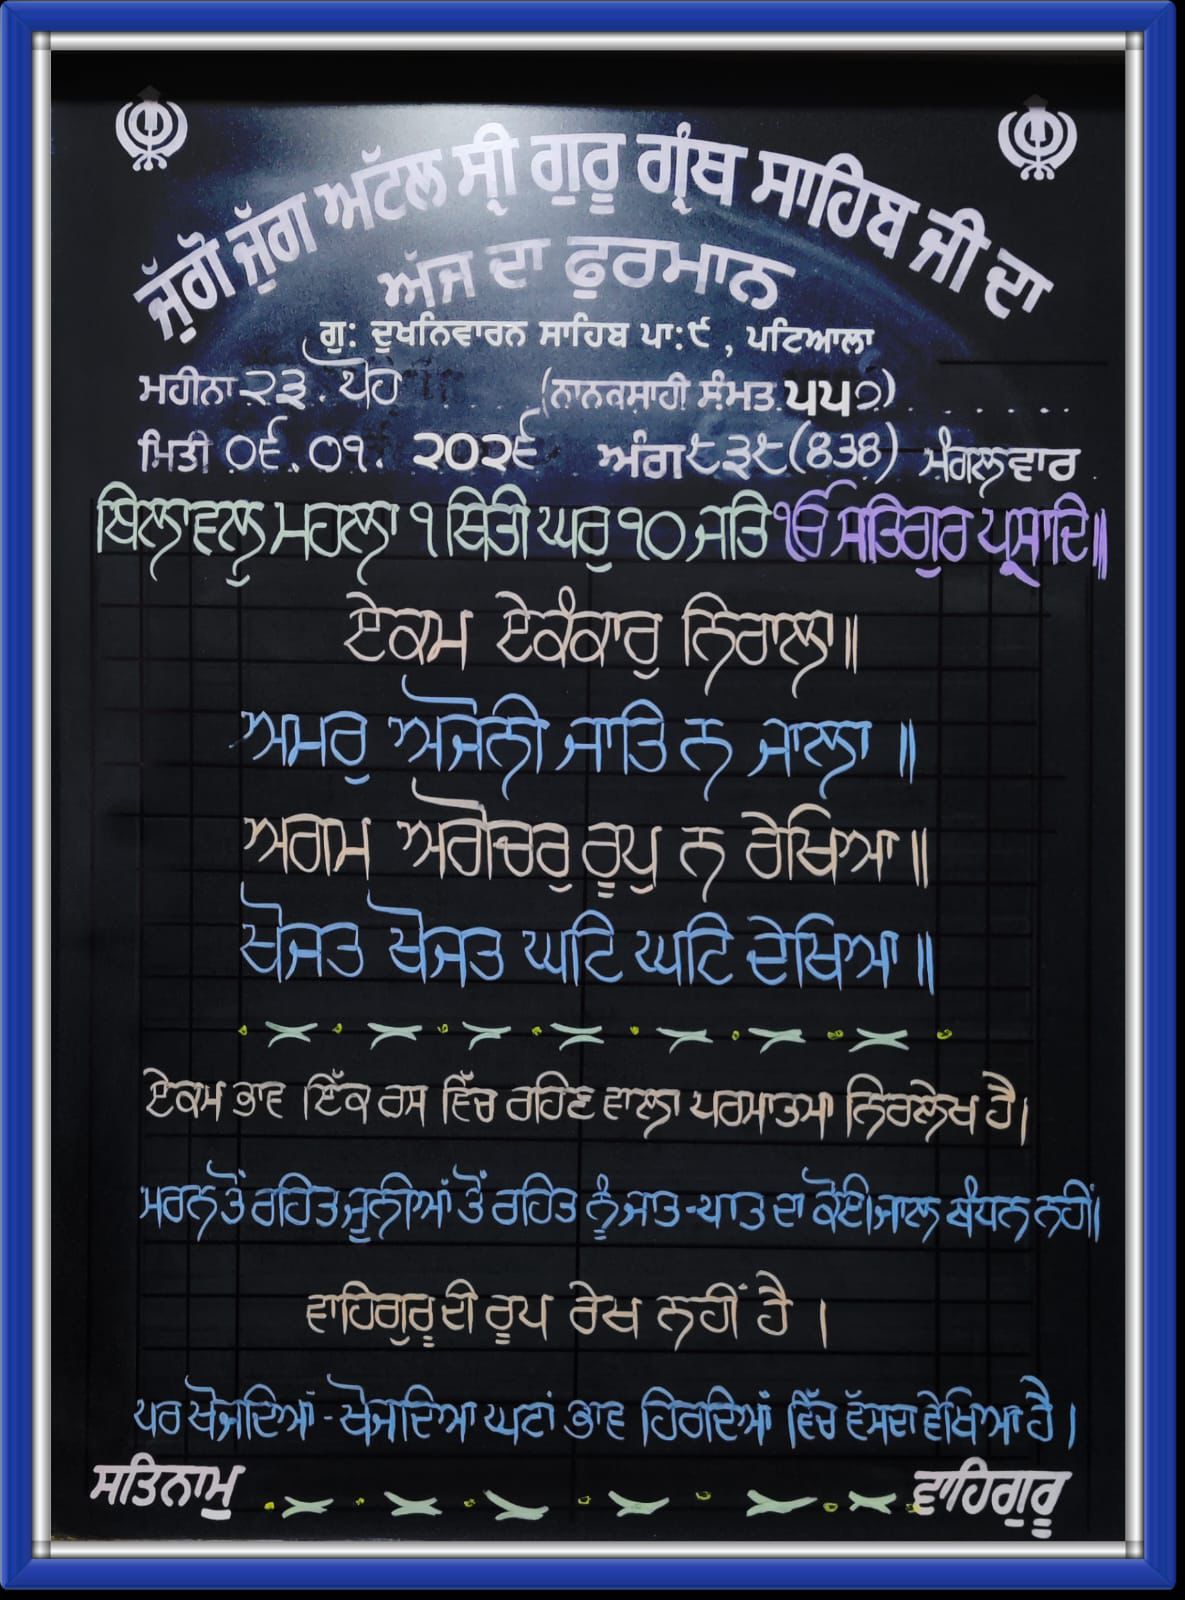 ਜੁੱਗੋ ਜੁੱਗ ਅਟੱਲ ਸ੍ਰੀ ਗੁਰੂ ਗ੍ਰੰਥ ਸਾਹਿਬ ਜੀ ਦਾ
ਅੱਜ ਦਾ ਫੁਰਮਾਨ
ਗੁ: ਦੁਖਨਿਵਾਰਨ ਸਾਹਿਬ ਪਾ:੯ , ਪਟਿਆਲਾ
ਮਹੀਨਾ ੨੩. ਪੋਹ (ਨਾਨਕਸ਼ਾਹੀ ਸੰਮਤ ੫੫੭)
ਮਿਤੀ ੦੬.੦੧. ੨੦੨੬ ਅੰਗ ੮੩੮ (838) ਮੰਗਲਵਾਰ
ਬਿਲਾਵਲੁ ਮਹਲਾ ੧ ਥਿਤੀ ਘਰੁ ੧੦ ਜਤਿ ੴ ਸਤਿਗੁਰ ਪ੍ਰਸਾਦਿ॥
ਏਕਮ ਏਕੰਕਾਰੁ ਨਿਰਾਲਾ॥
ਅਮਰੁ ਅਜੋਨੀ ਜਾਤਿ ਨ ਜਾਲਾ ॥
ਅਗਮ ਅਗੋਚਰੁ ਰੂਪੁ ਨ ਰੇਖਿਆ॥
ਖੋਜਤ ਖੋਜਤ ਘਟਿ ਘਟਿ ਦੇਖਿਆ॥
ਏਕਮ ਭਾਵ ਇੱਕ ਰਸ ਵਿੱਚ ਰਹਿਣ ਵਾਲਾ ਪਰਮਾਤਮਾ ਨਿਰਲੇਖ ਹੈ।
ਮਰਨ ਤੋਂ ਰਹਿਤ ਜੂਨੀਆਂ ਤੋਂ ਰਹਿਤ ਨੂੰ ਜਾਤ-ਪਾਤ ਦਾ ਕੋਈ ਜਾਲ ਬੰਧਨ ਨਹੀਂ।
ਵਾਹਿਗੁਰੂ ਦੀ ਰੂਪ ਰੇਖ ਨਹੀਂ ਹੈ ।
ਪਰ ਖੋਜਦਿਆਂ - ਖੋਜਦਿਆ ਘਟਾਂ ਭਾਵ ਹਿਰਦਿਆਂ ਵਿੱਚ ਵੱਸਦਾ ਵੇਖਿਆ ਹੈ ।
ਸਤਿਨਾਮੁ ਵਾਹਿਗੁਰੂ